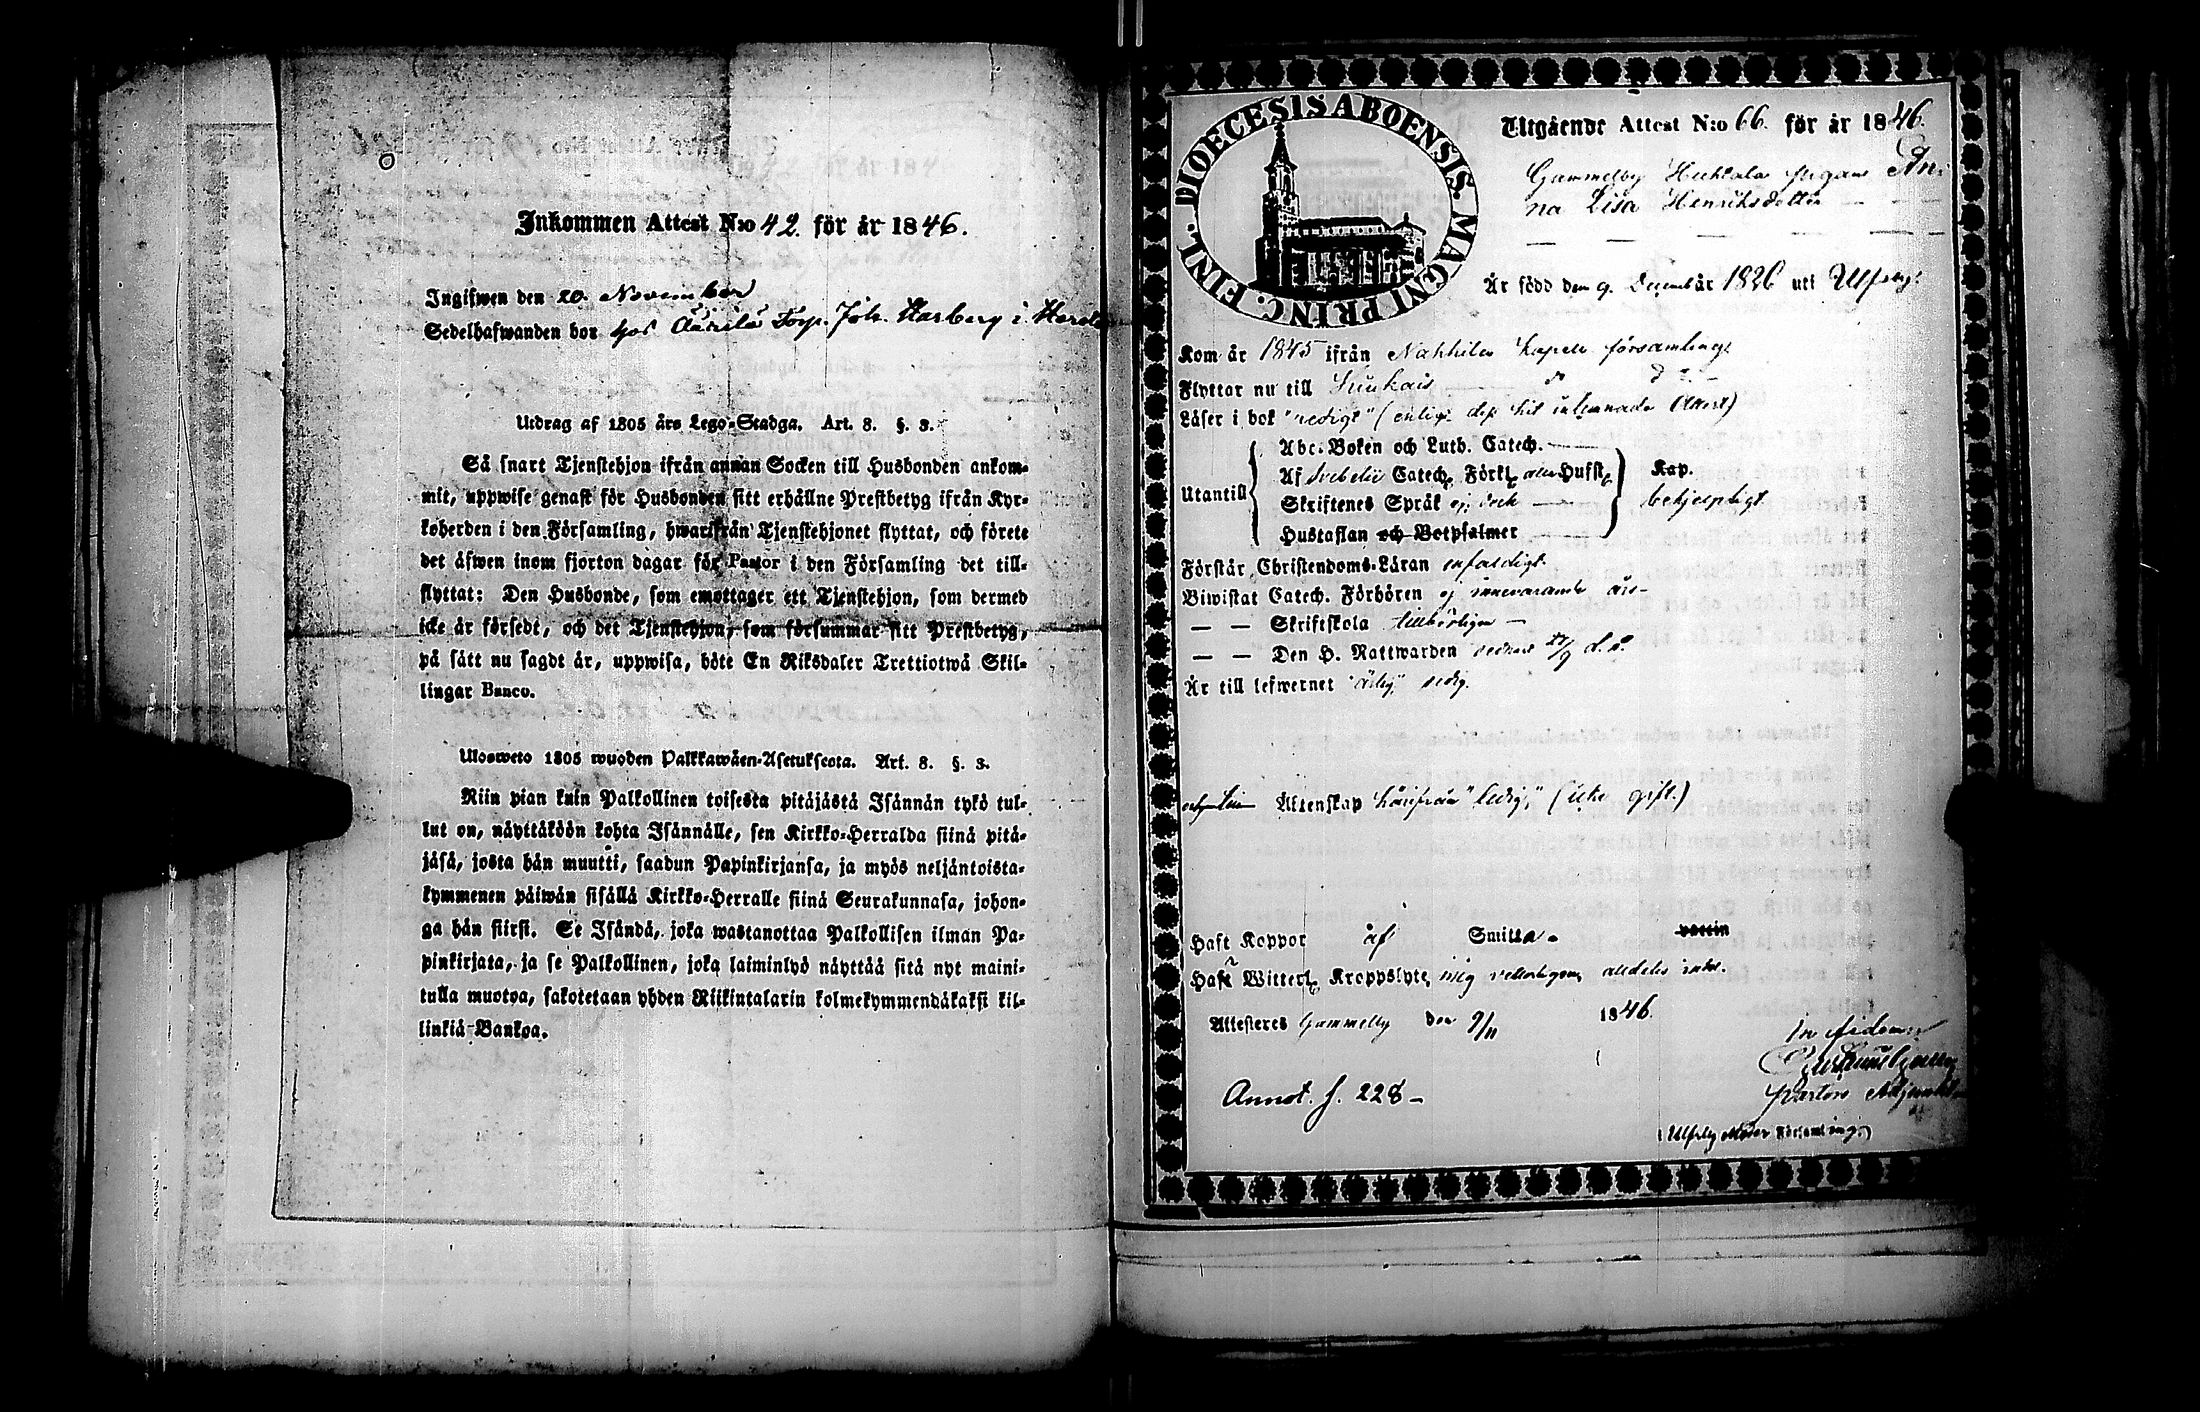 Inkommen Attest N:o 42. för år 1846.
Ingifwen den 20. November
Sedelhafwanden bor hos Torp. Joh. Harberg i
Utdrag af 1805 års Lego-Stadga. Art. 8. §. 3.
Så snart Tjenstehjon ifrån annan Socken till Husbonden ankom-
mit, uppwise genast för Husbonden sitt erhållne Prestbetyg ifrån Kyr-
koherden i den Församling, hwarifrån Tjenstehjonet flyttat, och förete
det äfwen inom fjorton dagar för Pastor i den Församling det till-
flyttat: Den Husbonde, som emottager ett Tjenstehjon, som dermed
icke är försedt, och det Tjenstehjon, som försummar sitt Prestbetyg,
på sätt nu sagdt är, uppwisa, böte En Riksdaler Trettiotwå Skil-
lingar Banco.
Ulosweto 1805 wuoden Palkkawäen-Asetuksesta. Art. 8. §. 3.
Niin pian kuin Palkollinen toisesta pitäjästä Isännän tykö tul-
lut on, näyttäköön kohta Isännälle, sen Kirkko-Herralda siinä pitä-
jäsä, josta hän muutti, saadun Papinkirjansa, ja myös neljäntoista-
kymmenen päiwän sisällä Kirkko-Herralle siinä Seurakunnasa, johon-
ga hän siirsi. Se Isändä, joka wastanottaa Palkollisen ilman Pa-
pinkirjata, ja se Palkollinen, joka laiminlyö näyttää sitä nyt maini-
tulla muotoa, sakotetaan yhden Riikintalarin kolmekymmendäkaksi kil-
linkiä Bankoa.
DIOECESIS ABOENSIS. MAGNI PRINC. FINL.
Utgående Attest N:o 66. för år 1846.
Gammelby pigan An-
na Lisa Henriksdotter
Är född den 9. December 1826 uti Ulfsby
Kom år 1845 ifrån Nakkila kapell församling
Flyttar nu till
Läser i bok "redigt" (enligt dess hit inlemnade Attest)
Utantill
Abc-Boken och Luth. Catech.
Af Svebelii Catech. Förkl. Hufst.
Skriftenes Språk ej dock
Hustaflan och Botpsalmer
Kap.
behjelpligt
Förstår Christendoms-Läran enfaldigt
Biwistat Catech. Förhören ej innevarande års
— — Skriftskola tillbörligen —
— — Den H. Nattwarden sednare
Är till lefwernet "ärlig" sedig.
Äktenskap härifrån "ledig," (icke gift.)
Haft Koppor af Smitta.
Haft Witterl. Kroppslyte mig veterligen alldeles intet.
Attesteres Gammelby den 9/11 1846.
In fidem
Pastors Adjunct
Annot. f. 228 —
(Ulfsby Moder Församling.)